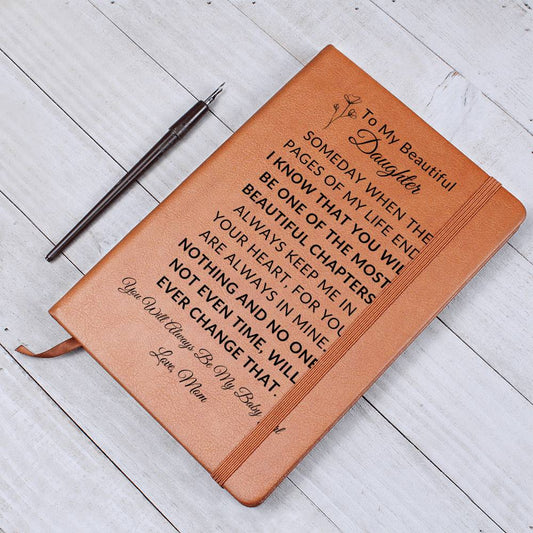 To My Beautiful
Daughter
SOMEDAY WHEN THE
PAGES OF MY LIFE END
I KNOW THAT YOU WIL
BE ONE OF THE MOST
BEAUTIFUL CHAPTERS
ALWAYS KEEP ME IN
YOUR HEART, FOR YOU
ARE ALWAYS IN MINE.
NOTHING AND NO ONE
NOT EVEN TIME, WILL
EVER CHANGE THAT.
You Will Always Be My Baby
Love, Mom